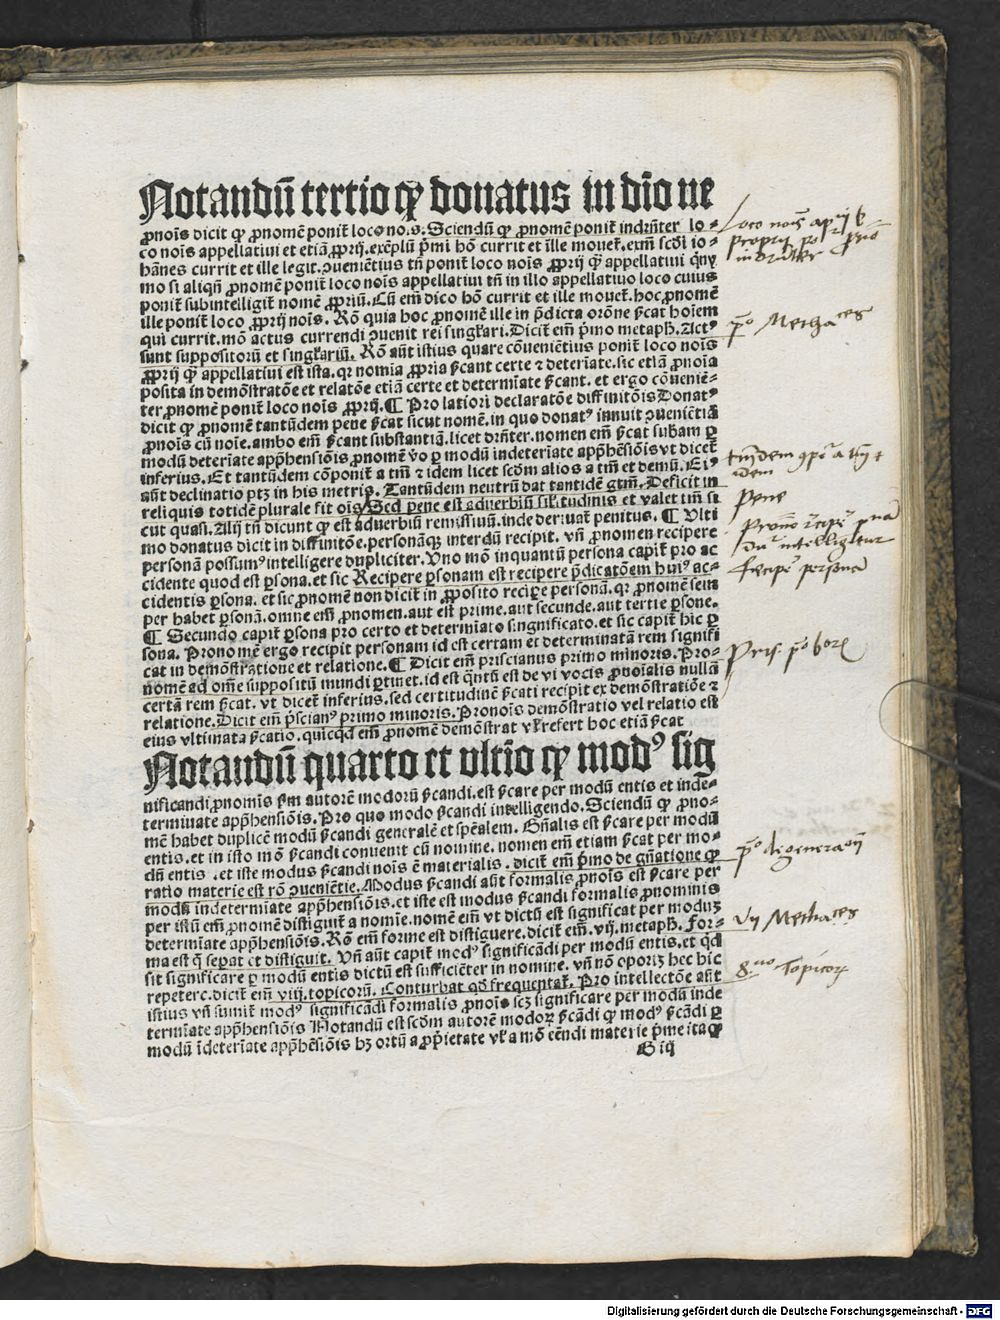 Notandū tertio ꝙ donatus in dīo ne
ꝓnoīs dicit ꝙ ꝓnomē ponit̄ loco no.s. Sciendū ꝙ ꝓnomē ponit̄ indrn̄ter lo⸗
co noīs appellatiui et etiā ꝓprij. exēplū p̄mi hō currit et ille mouet̄. exm̄ scd̄i io⸗
hānes currit et ille legit. ꝯueniētius tn̄ ponit̄ loco noīs ꝓprij qꝫ appellatiui
mo si aliqn̄ ꝓnomē ponit̄ loco noīs appellatiui tn̄ in illo appellatiuo loco cuius
ponit̄ subintelligit̄ nomē ꝓpriū. Cū em̄ dico hō currit et ille mouet̄. hoc ꝓnomē
ille ponit̄ loco ꝓprij noīs. Rō quia hoc ꝓnomē ille in p̄dicta orōne ſcat hoīem
qui currit. mō actus currendi ꝯuenit rei singlari. Dicit̄ em̄ p̄mo metaph. Actꝰ
sunt suppositorū et singlariū. Rō aūt istius quare cōueniētius ponit̄ loco noīs
ꝓprij qꝫ appellatiui est ista. qr nomia ꝓpria ſcant certe ⁊ deteriate. sic etiā ꝓnoīa
posita in demōstratōe et relatōe etiā certe et determīate ſcant. et ergo cōueniē⸗
ter ꝓnomē ponit̄ loco noīs ꝓprij. ¶ Pro latiori declaratōe diffinitōis Donatꝰ
dicit ꝙ ꝓnomē tantūdem pene ſcat sicut nomē. in quo donatꝰ innuit ꝯueniētiā
ꝓnoīs cū noīe. ambo em̄ ſcant substantiā. licet drn̄ter. nomen em̄ ſcat subam ꝑ
modū deteriate appn̄hensiōis ꝓnomē v̄o ꝑ modū indeteriate appn̄hēsiōis vt dicet̄
inferius. Et tantūdem cōponit̄ a tm̄ ⁊ idem licet scd̄m alios a tm̄ et demū. Eiꝰ
aūt declinatio ptꝫ in his metris. Tantūdem neutrū dat tantidē gtm̄. Deficit in
reliquis totidē plurale fit oīs. Sed pene est aduerbiū sil̄itudinis et valet tm̄ si
cut quasi. Alij tn̄ dicunt ꝙ est aduerbiū remissiuū. inde deriuat̄ penitus. ¶ Ulti
mo donatus dicit in diffinitōe. personāqꝫ interdū recipit. vn̄ ꝓnomen recipere
personā possumꝰ intelligere dupliciter. Uno mō inquantū persona capit̄ pro ac
cidente quod est ꝑsona. et sic Recipere ꝑsonam est recipere p̄dicatōem huiꝰ ac⸗
cidentis ꝑsona. et sic ꝓnomē non dicit̄ in ꝓposito recipere personā. qr ꝓnomē sem
per habet ꝑsonā. omne em̄ ꝓnomen. aut est prime. aut secunde. aut tertie ꝑsone.
¶ Secundo capit̄ ꝑsona pro certo et determiato significato. et sic capit̄ hic ꝑ
sona. Pronomē ergo recipit personam id est certam et determinatā rem signifi
cat in demōstratione et relatione. ¶ Dicit em̄ priscianus primo minoris. Pro⸗
nomē ad om̄e suppositū mundi ꝑtinet. id est q̄ntū est de vi vocis ꝓnoīalis nullā
certā rem ſcat. vt dicet̄ inferius. sed certitudinē ſcati recipit ex demōstratiōe ⁊
relatione. Dicit em̄ p̄scianꝰ primo minoris. Pronoīs demōstratio vel relatio est
eius vltimata ſcatio. quicqd em̄ ꝓnomē demōstrat vl̄ refert hoc etiā ſcat
Notandū quarto et vltīo ꝙ modꝰ sig
nificandi ꝓnomīs ſm autorē modorū ſcandi. est ſcare per modū entis et inde⸗
terminate appn̄hēsiōis. Pro quo modo ſcandi intelligendo. Sciendū ꝙ ꝓno⸗
mē habet duplicē modū ſcandi generalē et sp̄ealem. Gn̄alis est ſcare per modū
entis. et in isto mō ſcandi conuenit cū nomine. nomen em̄ etiam ſcat per mo⸗
dū entis. et iste modus ſcandi noīs ē materialis. dicit̄ em̄ p̄imo de gn̄atione ꝙ
ratio materie est rō ꝯueniētie. Modus ſcandi aūt formalis ꝓnoīs est ſcare per
modū indeterminate appn̄hensiōis. et iste est modus ſcandi formalis ꝓnominis
per istū em̄ ꝓnomē distiguit̄ a nomīe. nomē em̄ vt dictū est significat per moduꝫ
determīate appn̄hensiōis. Rō em̄ forme est distīguere. dicit̄ em̄. vij. metaph. For⸗
ma est q̄ seꝑat et distiguit. Vn̄ aūt capit̄ modꝰ significādi per modū entis. et qd
sit significare ꝑ modū entis dictū est sufficiēter in nomine. vn̄ nō oporꝫ hec hic
repetere. dicit̄ em̄ viij. topicorū. Conturbat qd frequentat̄. Pro intellectōe aūt
istius vn̄ sumit̄ modꝰ significādi formalis ꝓnoīs scꝫ significare per modū inde
terminate appn̄hensiōis Notandū est scd̄m autorē modoꝝ ſcādi ꝙ modꝰ ſcādi ꝑ
modū īdeterīate appn̄hēsiōis hꝫ ortū a ꝓp̄ietate vl̄ a mō eēndi materie p̄me ita ꝙ
G iij
pͦ Metha ces
pene
recipe personā
Pris. pͦ
pͦ de generaōn
vij Metha ces
8 uo Topicoꝝ
Digitalisierung gefördert durch die Deutsche Forschungsgemeinschaft - DFG